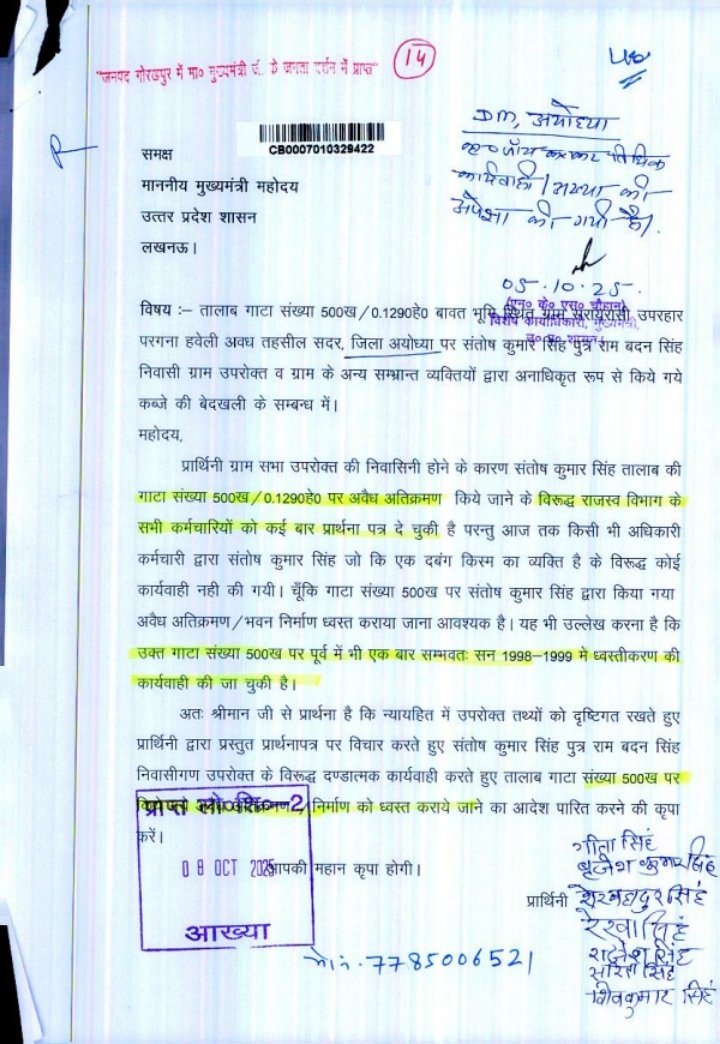 14
"जनपद गोरखपुर में मा० मुख्यमंत्री जी के जनता दर्शन में प्राप्त"
DM, अयोध्या
कार्यवाही / आख्या की
अपेक्षा की गयी है।
05.10.25
(एन० के० एस० चौहान)
विशेष कार्याधिकारी, मुख्यमंत्री,
उ० प्र० शासन
CB0007010329422
समक्ष
माननीय मुख्यमंत्री महोदय
उत्तर प्रदेश शासन
लखनऊ।
विषय :– तालाब गाटा संख्या 500ख/0.1290हे0 बावत भूमि स्थित ग्राम सरायरासी उपरहार
परगना हवेली अवध तहसील सदर, जिला अयोध्या पर संतोष कुमार सिंह पुत्र राम बदन सिंह
निवासी ग्राम उपरोक्त व ग्राम के अन्य सम्भ्रान्त व्यक्तियों द्वारा अनाधिकृत रूप से किये गये
कब्जे की बेदखली के सम्बन्ध में।
महोदय,
प्रार्थिनी ग्राम सभा उपरोक्त की निवासिनी होने के कारण संतोष कुमार सिंह तालाब की
गाटा संख्या 500ख/0.1290हे0 पर अवैध अतिक्रमण किये जाने के विरूद्ध राजस्व विभाग के
सभी कर्मचारियों को कई बार प्रार्थना पत्र दे चुकी है परन्तु आज तक किसी भी अधिकारी
कर्मचारी द्वारा संतोष कुमार सिंह जो कि एक दबंग किस्म का व्यक्ति है के विरूद्ध कोई
कार्यवाही नही की गयी। चूँकि गाटा संख्या 500ख पर संतोष कुमार सिंह द्वारा किया गया
अवैध अतिक्रमण/भवन निर्माण ध्वस्त कराया जाना आवश्यक है। यह भी उल्लेख करना है कि
उक्त गाटा संख्या 500ख पर पूर्व में भी एक बार सम्भवतः सन 1998–1999 मे ध्वस्तीकरण की
कार्यवाही की जा चुकी है।
अतः श्रीमान जी से प्रार्थना है कि न्यायहित में उपरोक्त तथ्यों को दृष्टिगत रखते हुए
प्रार्थिनी द्वारा प्रस्तुत प्रार्थनापत्र पर विचार करते हुए संतोष कुमार सिंह पुत्र राम बदन सिंह
निवासीगण उपरोक्त के विरूद्ध दण्डात्मक कार्यवाही करते हुए तालाब गाटा संख्या 500ख पर
निर्माण को ध्वस्त कराये जाने का आदेश पारित करने की कृपा
करें।
प्राप्त लो०शि०-2
08 OCT 2025
आख्या
आपकी महान कृपा होगी।
प्रार्थिनी
गीता सिंह
बृजेश कुमार सिंह
शेरबहादुर सिंह
रेखा सिंह
राजेश सिंह
सरिता सिंह
शिवकुमार सिंह
मो०नं. 7785006521